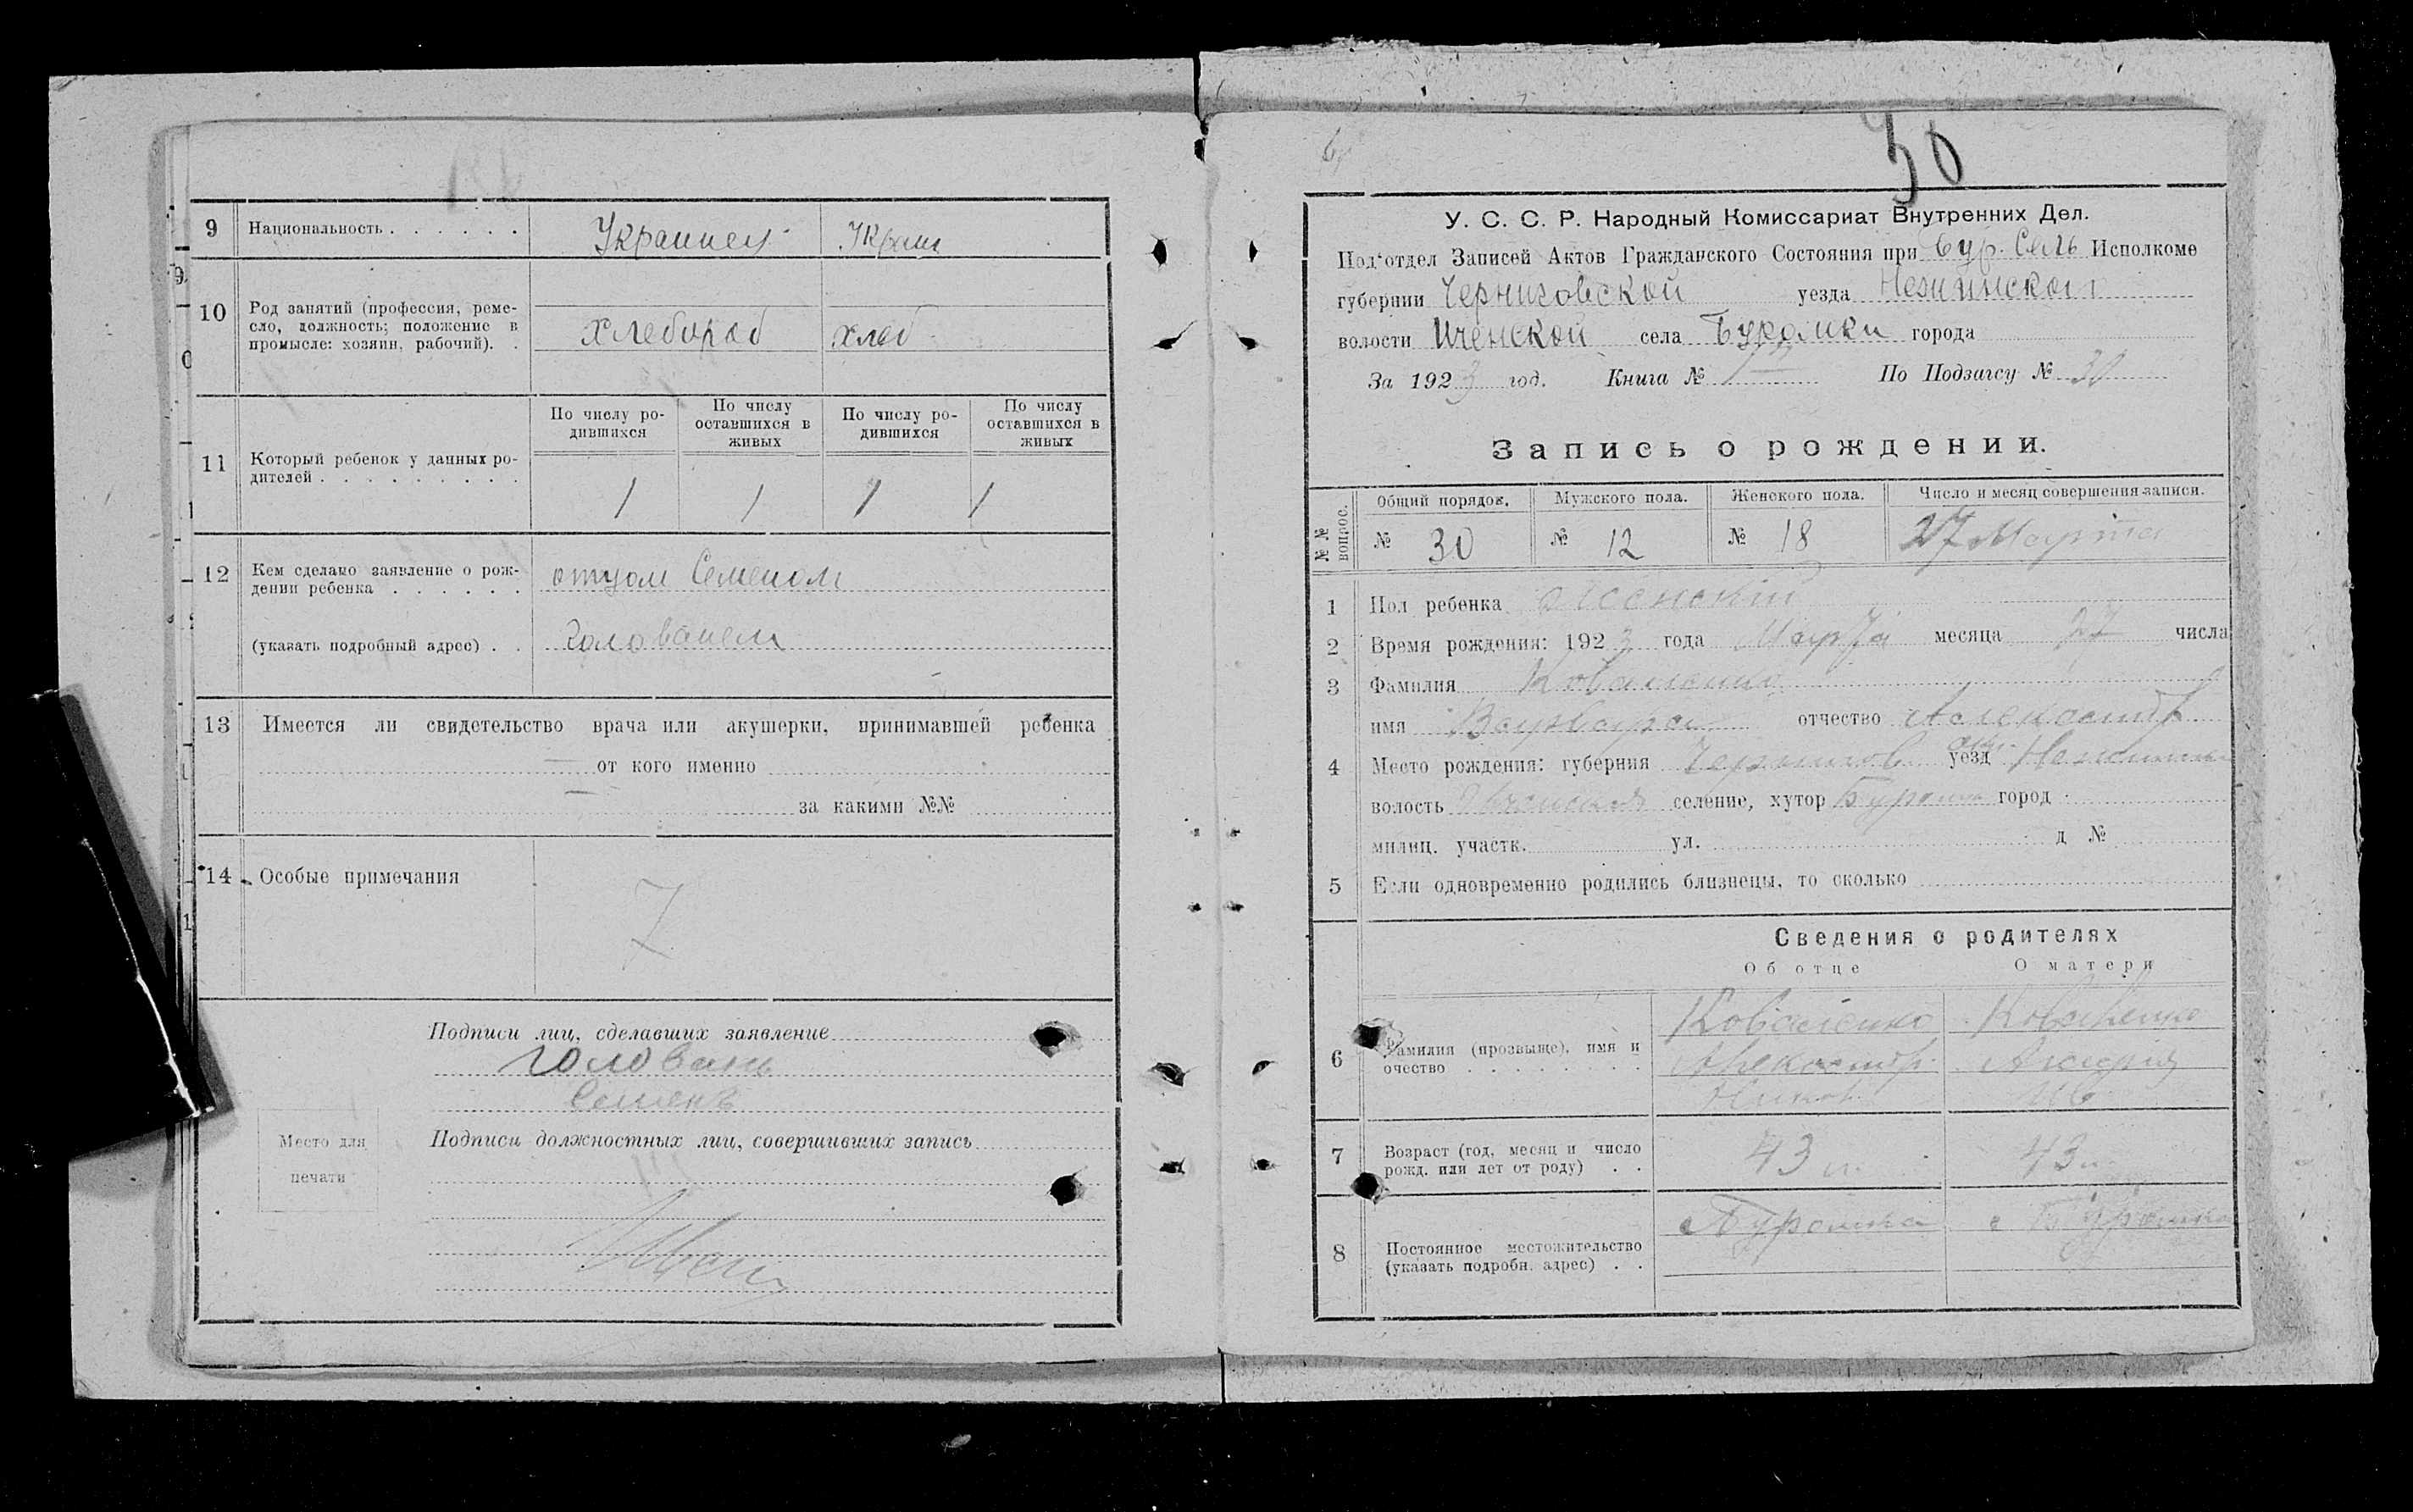 9 Национальность . . . . . . Украинец Украин
10 Род занятий (профессия, реме-
сло, должность; положение в
промысле: хозяин, рабочий). . хлебороб хлеб
11 Который ребенок у данных ро-
дителей . . . . . . . . .
По числу ро-
дившихся
По числу
оставшихся в
живых
По числу ро-
дившихся
По числу
оставшихся в
живых
1 1 1 1
12 Кем сделано заявление о рож-
дении ребенка . . . . . . отцом Семеном
(указать подробный адрес) . . Голованем
13 Имеется ли свидетельство врача или акушерки, принимавшей ребенка
от кого именно
за какими №№
14 Особые примечания
Подписи лиц, сделавших заявление
Головань
Семенъ
Место для
печати
Подписи должностных лиц, совершивших запись
30
У. С. С. Р. Народный Комиссариат Внутренних Дел.
Под‘отдел Записей Актов Гражданского Состояния при Бур. Сель Исполкоме
губернии Черниговской уезда Нежинского
волости Иченской села Буромки города
За 1923 год. Книга № По Подзагсу № 30
Запись о рождении.
№№ вопрос.
Общий порядок. Мужского пола. Женского пола. Число и месяц совершения записи.
№ 30 № 12 № 18 27 Марта
1 Пол ребенка женский
2 Время рождения: 1923 года Марта месяца 27 числа
3 Фамилия Коваленко
имя Варвара отчество Александр
4 Место рождения: губерния Чернигов уезд окр. Нежинск
волость Иченская селение, хутор Буромка город
милиц. участк. ул. д №
5 Если одновременно родились близнецы, то сколько
Сведения о родителях
Об отце О матери
6 Фамилия (прозвище), имя и
очество . . . . . . . .
Коваленко Коваленко
Александр
7 Возраст (год, месяц и число
рожд. или лет от роду) . . 43 л 43 л
8 Постоянное местожительство
(указать подробн. адрес) . .
с Буромка с Буромка